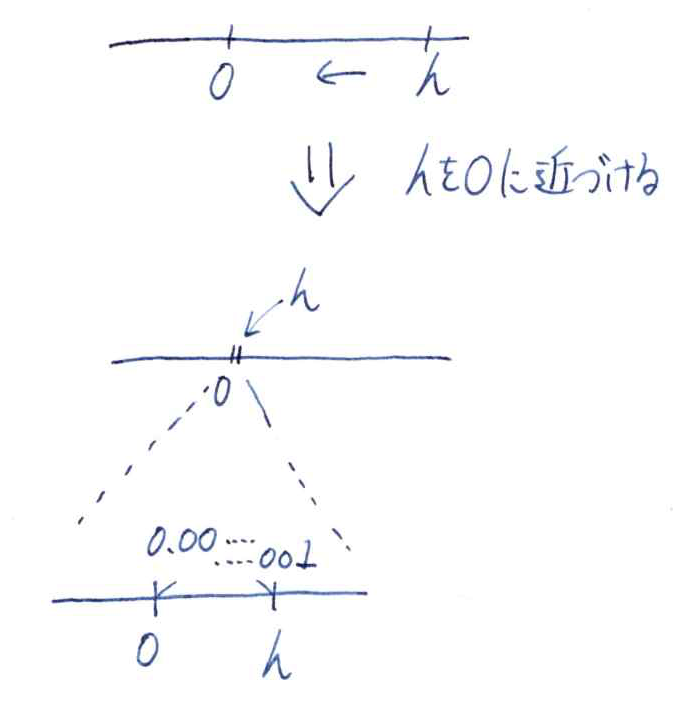 0 ← h
⇓ hを0に近づける
h
0
0.00……
……001
0 h